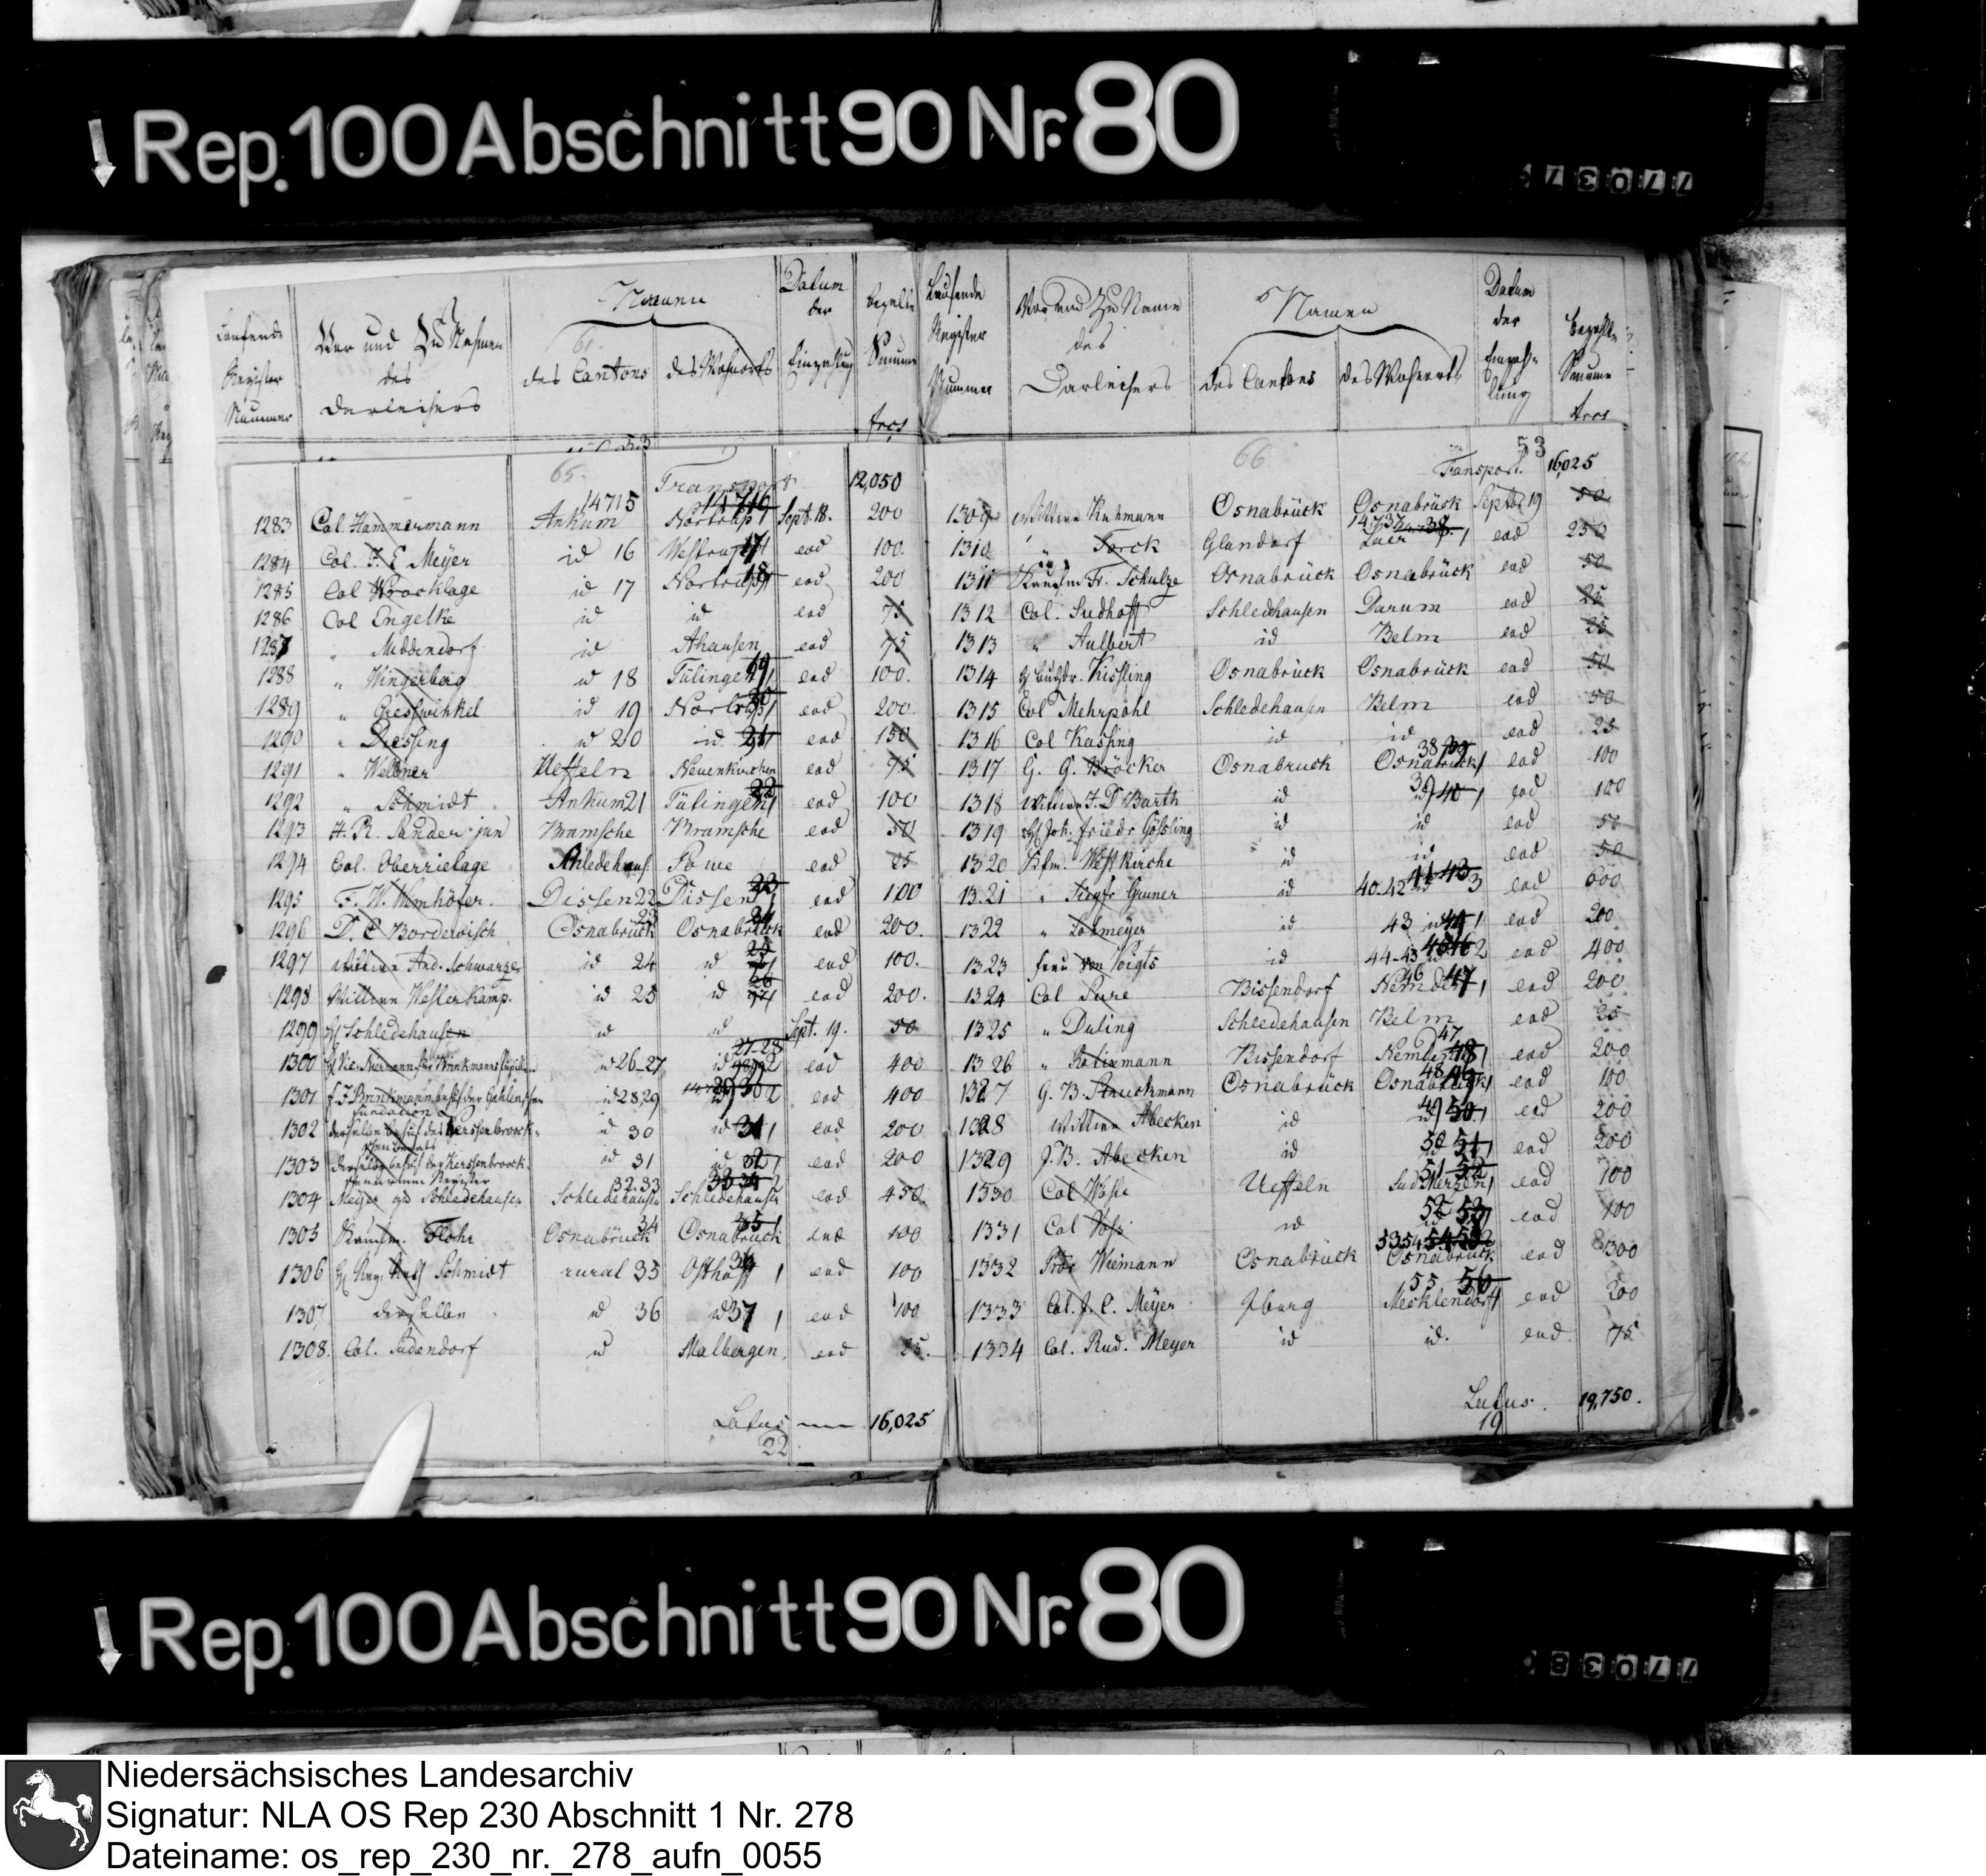 Rep. 100 Abschnitt 90 Nr. 80
Laufende Register Nummer
Vor und Zu Nahmen des Darleihers
Namen
des Cantons
des Wohnorts
Datum der Einzahlung
bezahlte Summe
frcs
65.
Transport 12,050
1283 Col. Hammermann Ankum 14715 Nortrup 14716 1 Sept. 18. 200
1284 Col. J. E Meyer id 16 Westrup 17 1 eod 100.
1285 Col Wrochlage id 17 Nortrup 18 1 eod 200
1286 Col Engelke id id eod 75
1287 " Middendorf id Ahausen eod 75
1288 " Wingerberg id 18 Tülingen 19 1 eod 100.
1289 " Gresswinkel id 19 Nortrup 20 1 eod 200.
1290 " Diessing id 20 id 21 1 eod 150
1291 " Wellner Ueffeln Neuenkirchen eod 75
1292 " Schmidt Ankum 21 Tülingen 22 1 eod 100
1293 H. R. Sander jun Bramsche Bramsche eod 50
1294 Col. Oberrielage Schledehaus. Powe eod 25
1295 F. W. Wmhöfer. Dissen 22 Dissen 23 1 eod 100
1296 D. E Borderoisch Osnabrück 23 Osnabrück 24 eod 200.
1297 Wittwe And. Schwarze id 24 id 25 1 eod 100.
1298 Wittwe Westerkamp. id 25 id 26 1 eod 200.
1299 H Schledehausen id id Sept. 19. 50
1300 id 26-27 id 27-28 2 eod 400
1301 id 28,29 id 29 30 2 eod 400
Fundation
1302 derselbe behuf des Kerssenbroock- id 30 id 31 1 eod 200
1303 derselbe behuf der Kerssenbroock- id 31 id 32 1 eod 200
1304 Meyer zu Schledehausen Schledehausen 32.33 Schledehausen 33 34 2 eod 450
1305 Kaufm. Flohr Osnabrück 34 Osnabrück 35 1 eod 100
1306 Schmidt rural 35 Osthoff 36 1 eod 100
1307 derselbe id 36 id 37 1 eod 100
1308. Col. Südendorf id Malbergen eod 25.
Latus 16,025
22
Laufende Register Nummer
Vor und Zu Name des Darleihers
Namen
des Cantons
des Wohnorts
Datum der Einzahlung
Bezahlte Summe
frcs
66
53
Transport 16,025
1309 Wittwe Kuhmann Osnabrück Osnabrück Septbr 19 50
1310 " Torck Glandorf Laer 14737 1 eod 250
1311 Kaufm Fr. Schulze Osnabrück Osnabrück eod 50
1312 Col. Sudhoff Schledehausen Darum eod 25
1313 " Aulbert id Belm eod 25
1314 Kissling Osnabrück Osnabrück eod 50
1315 Col Mehrpohl Schledehausen Belm eod 50
1316 Col Kassing id id eod 25
1317 G. G. Bröcker Osnabruck Osnabrück 38 39 1 eod 100
1318 Wittwe J. D Barth id id 39 40 1 eod 100
1319 H Joh. Friedr Gössling id id eod 50
1320 Kfm. Westkirche id id eod 50
1321 " Gruner id 40-42 id 41 43 3 eod 600
1322 " Lohmeyer id 43 id 44 1 eod 200
1323 Frau von Voigts id 44-45 id 45 46 2 eod 400
1324 Col Sure Bissendorf Nemden 46 47 1 eod 200
1325 " Duling Schledehausen Belm eod 25
1326 " Bolixmann Bissendorf Nemden 47 48 1 eod 200
1327 G. B. Struckmann Osnabrück Osnabrück 48 49 1 eod 100
1328 Wittwe Abecken id id 49 50 1 eod 200
1329 J. B. Abecken id id 50 51 1 eod 200
1330 Col Wosse Ueffeln Sudmerzen 51 52 1 eod 100
1331 Col Voss id id 52 53 1 eod 100
1332 Wiemann Osnabrück Osnabrück 53 54 54 55 2 eod 300
1333 Col. J. C. Meyer Iburg Mecklendorf 55 56 1 eod 200
1334 Col. Rud. Meyer id id. eod. 75
Latus. 19,750.
19
Rep. 100 Abschnitt 90 Nr. 80
Niedersächsisches Landesarchiv
Signatur: NLA OS Rep 230 Abschnitt 1 Nr. 278
Dateiname: os_rep_230_nr._278_aufn_0055